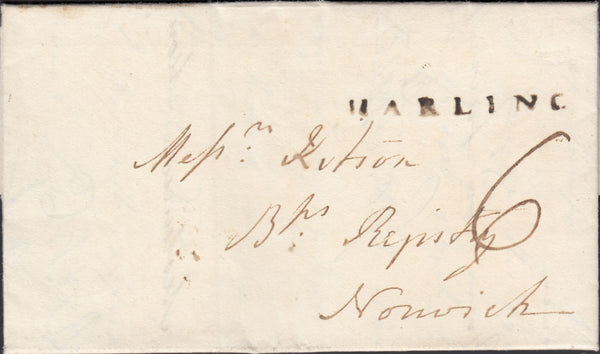 HARLING
Mess.rs Kitson
6
Bps Registry
Norwich